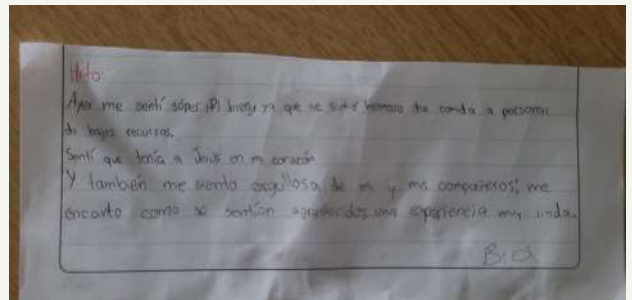 Hito:
Ayer me sentí súper bien, ya que se sintió hermoso dar comida a personas
de bajos recursos.
Sentí que tenía a Jesús en mi corazón
Y también me siento orgullosa de mi y mis compañeros; me
encanto como se sentían agradecidos una experiencia muy linda.